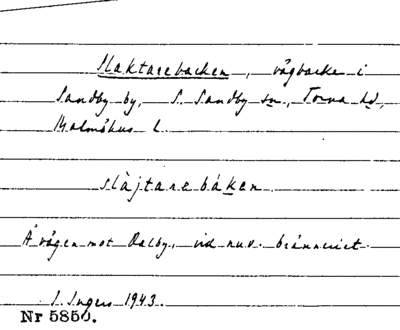 Slaktarebacken, vägbacke i
Sandby by, S. Sandby sn, Torna hd,
Malmöhus l.
slàjtarebáken
Å vägen mot Dalby, vid nuv. bränneriet.
I. Ingers 1943.
Nr 5850.